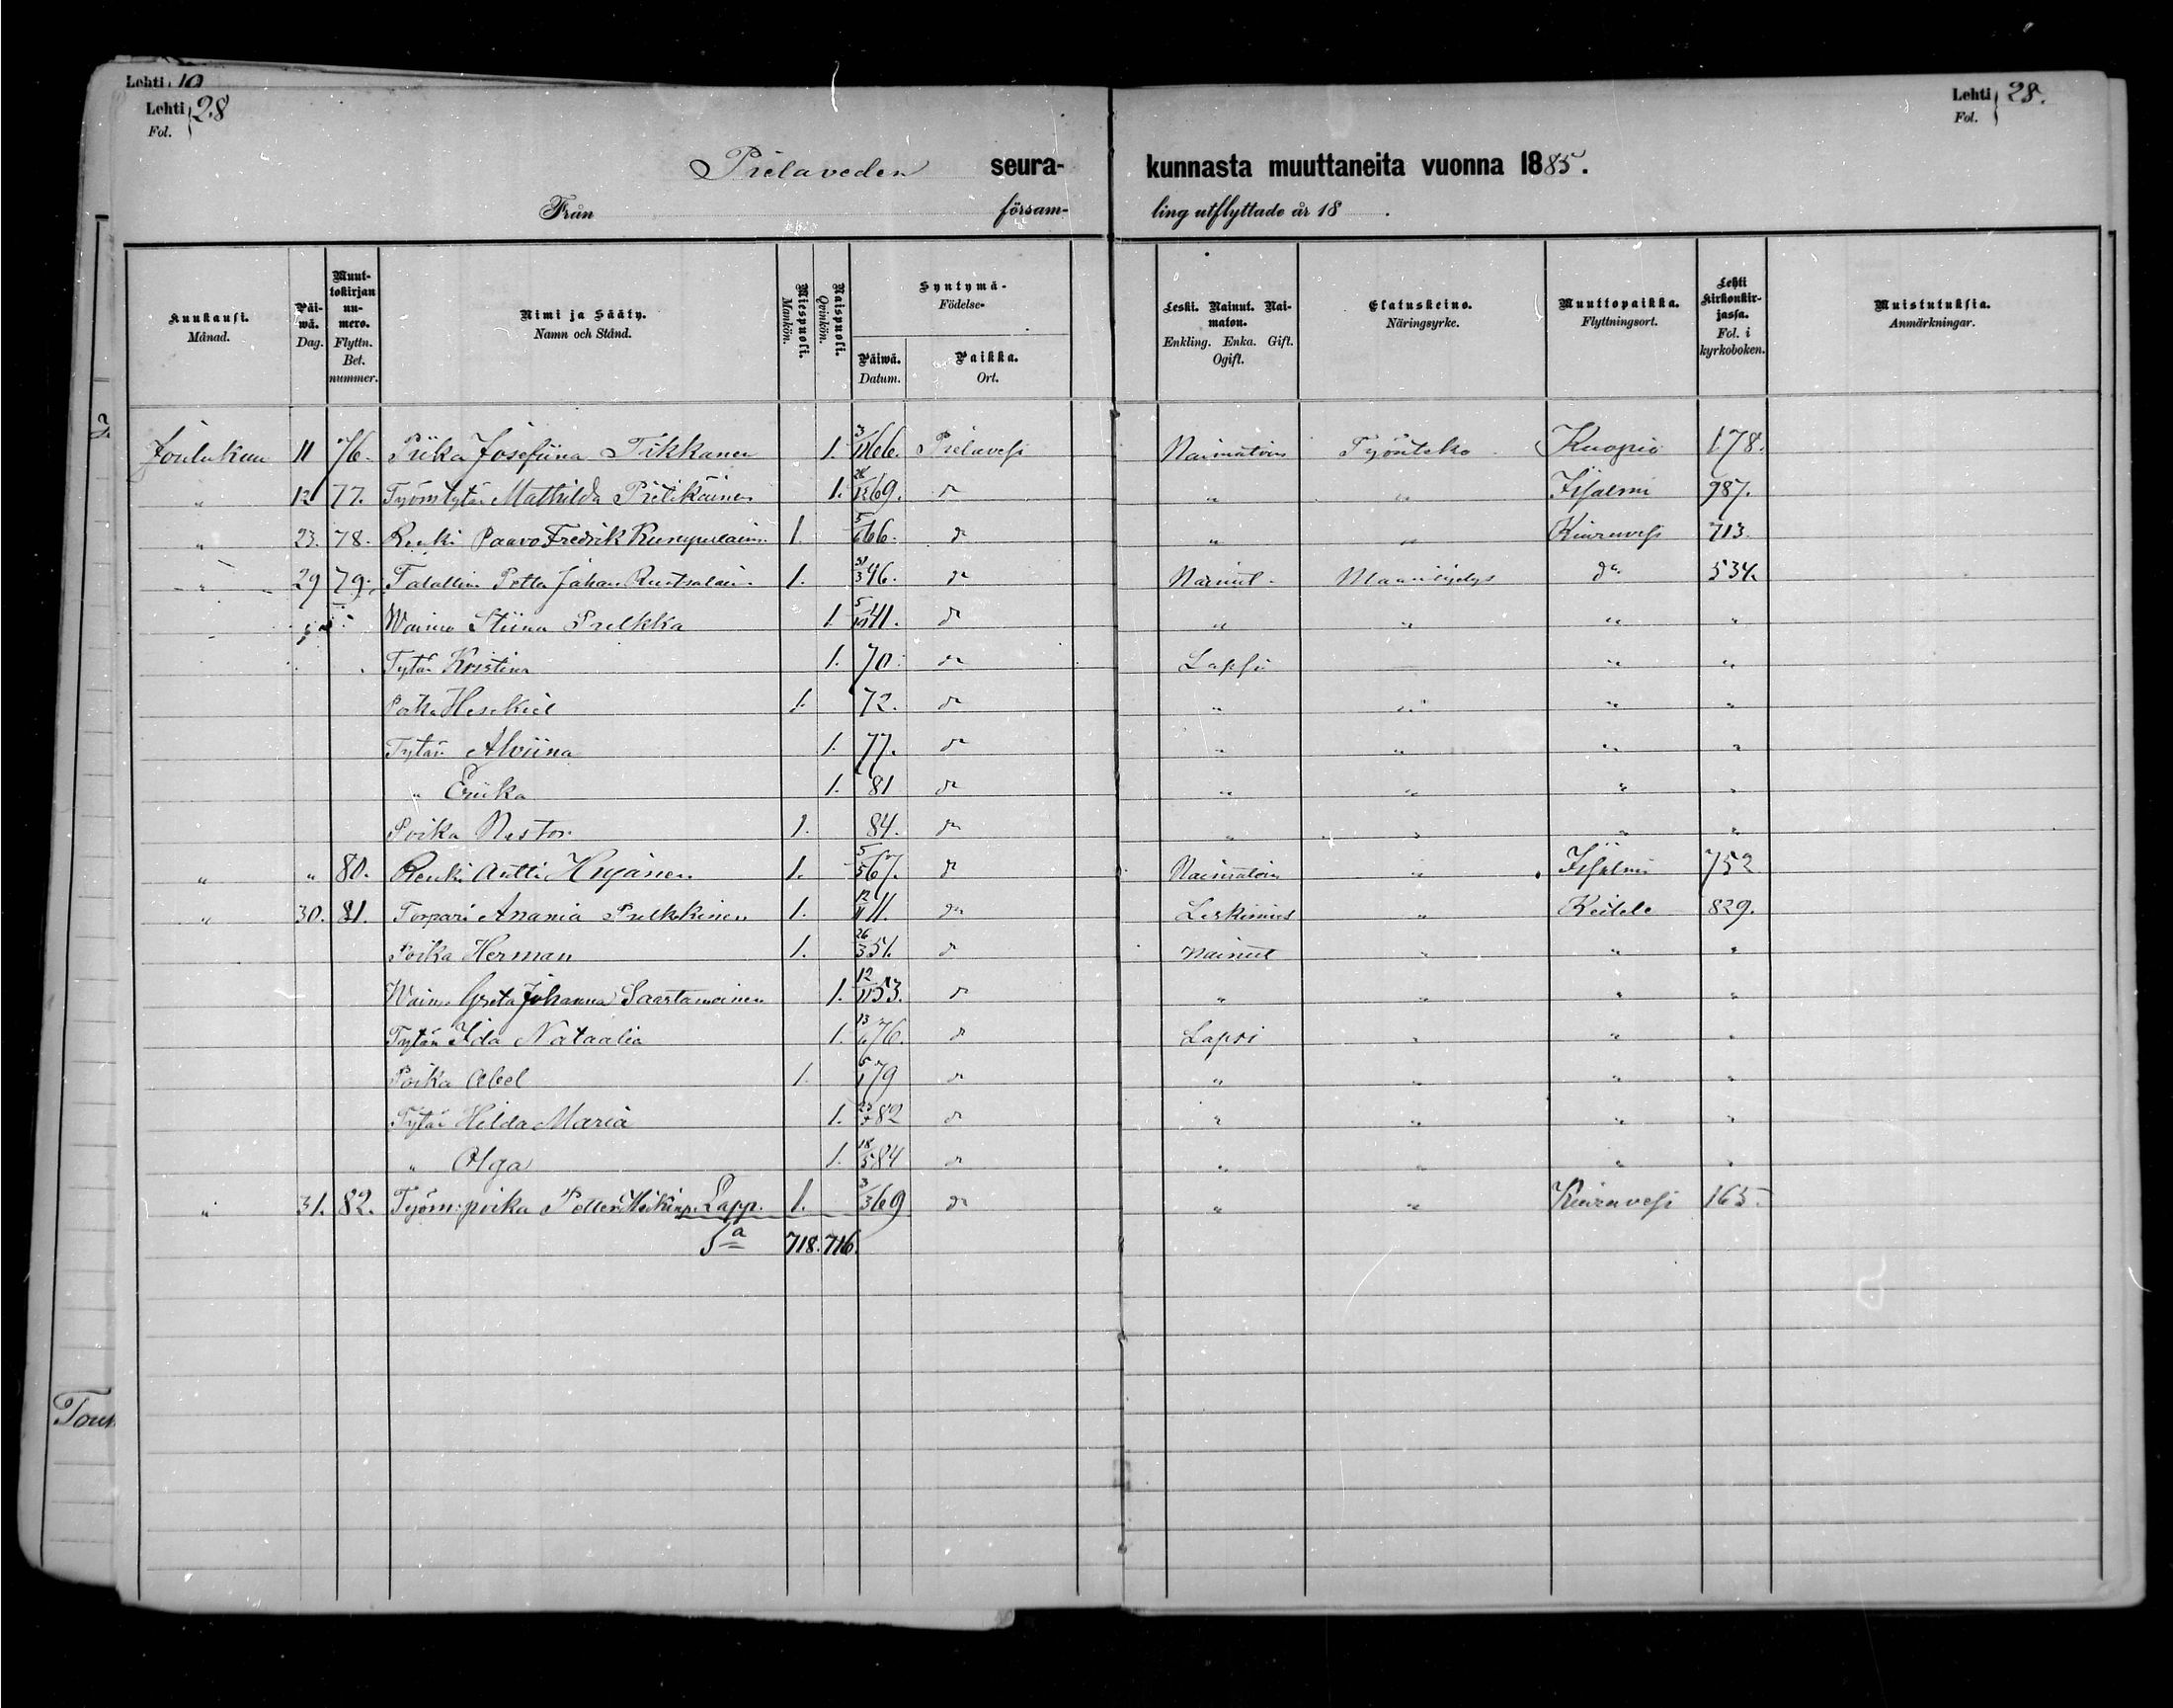 Lehti 19
Lehti 28
Fol.
Lehti 28.
Fol.
Pielaveden seura-kunnasta muuttaneita vuonna 1885.
Från församling utflyttade år 18 .
Kuukausi. Månad.
Päiwä. Dag.
Muuttokirjan numero. Flyttn. Bet. nummer.
Nimi ja Sääty. Namn och Stånd.
Miespuoli. Mankön.
Naispuoli. Qvinkön.
Syntymä- Födelse-
Päiwä. Datum.
Paikka. Ort.
Leski. Nainut. Naimaton. Enkling. Enka. Gift. Ogift.
Elatuskeino. Näringsyrke.
Muuttopaikka. Flyttningsort.
Lehti kirkonkirjassa. Fol. i kyrkoboken.
Muistutuksia. Anmärkningar.
Joulukuu 11 76. Piika Josefiina Tikkanen 1. 3/11 66. Pielavesi Naimatoin Työnteko Kuopio 178.
" 12 77. Työmtytär Mathilda Pietikäinen 1. 69. do " " Iisalmi 987.
" 23. 78. Renki Paavo Fredrik 1. 5/6 66. do " " Kiuruvesi 713
" 29 79. Talollinen Petter Johan Ruotsalain. 1. 3 46. do Nainut Maanviljelys do 534.
Waimo Stiina Pulkka 1. 5/10 41. do " " " "
Tytär Kristina 1. 70. do Lapsi " "
Poika Hesekiel 1. 72. do " " " "
Tytär Alviina 1. 77. do " " " "
" Eriika 1. 81 do " " " "
Poika Nestor 1. 84. do " " " "
" " 80. Renki Antti Hujanen 1. 5/5 67. do Naimatoin " Iisalmi 752
" 30. 81. Torpari Anania Pulkkinen 1. 12/11 11. do Leskimies " Keitele 829.
Poika Herman 1. 26/3 51. do Nainut " " "
Waimo Greta Johanna Saastamoinen 1. 12/11 53. do " " " "
Tytär Ida Nataalia 1. 13/6 76. do Lapsi " " "
Poika Abel 1. 79 do " " " "
Tytär Hilda Maria 1. 82 do " " " "
" Olga 1. 18/5 84 do " " " "
" 31. 82. Työm: poika Petter Heikinp. Lapp. 1. 3/3 69 do " " Kiuruvesi 165
Sa 718. 716.
Touk